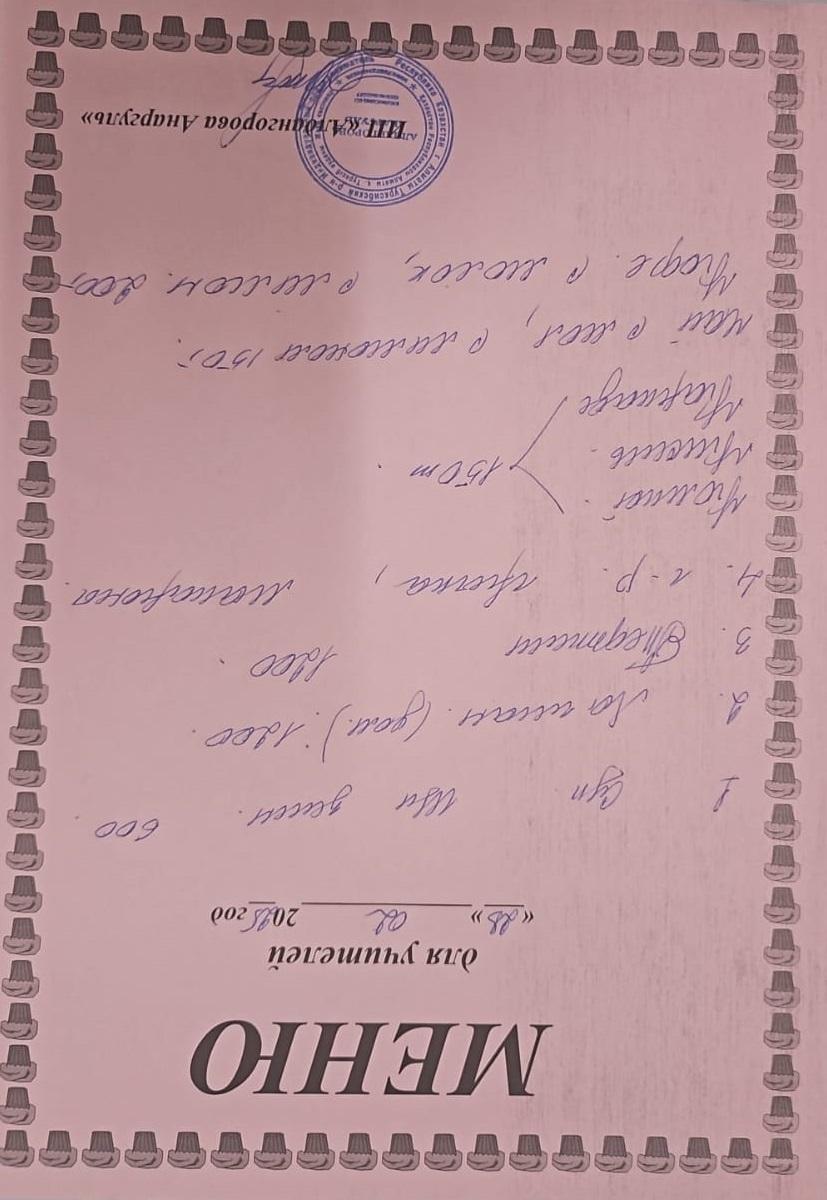 МЕНЮ
для учителей
«28» 02 2025 год
1 Суп Щи зелен. 600
2. Лагман. (дом.) 1200
3. Тефтели 1200
4. г-р. гречка, макароны.
Компот
Кисель 150 т
Каркаде
Чай с мол, с лимоном 150,-
Кофе. с молок, с лимон. 200,-
ИП «Алдангорова Анаргуль»